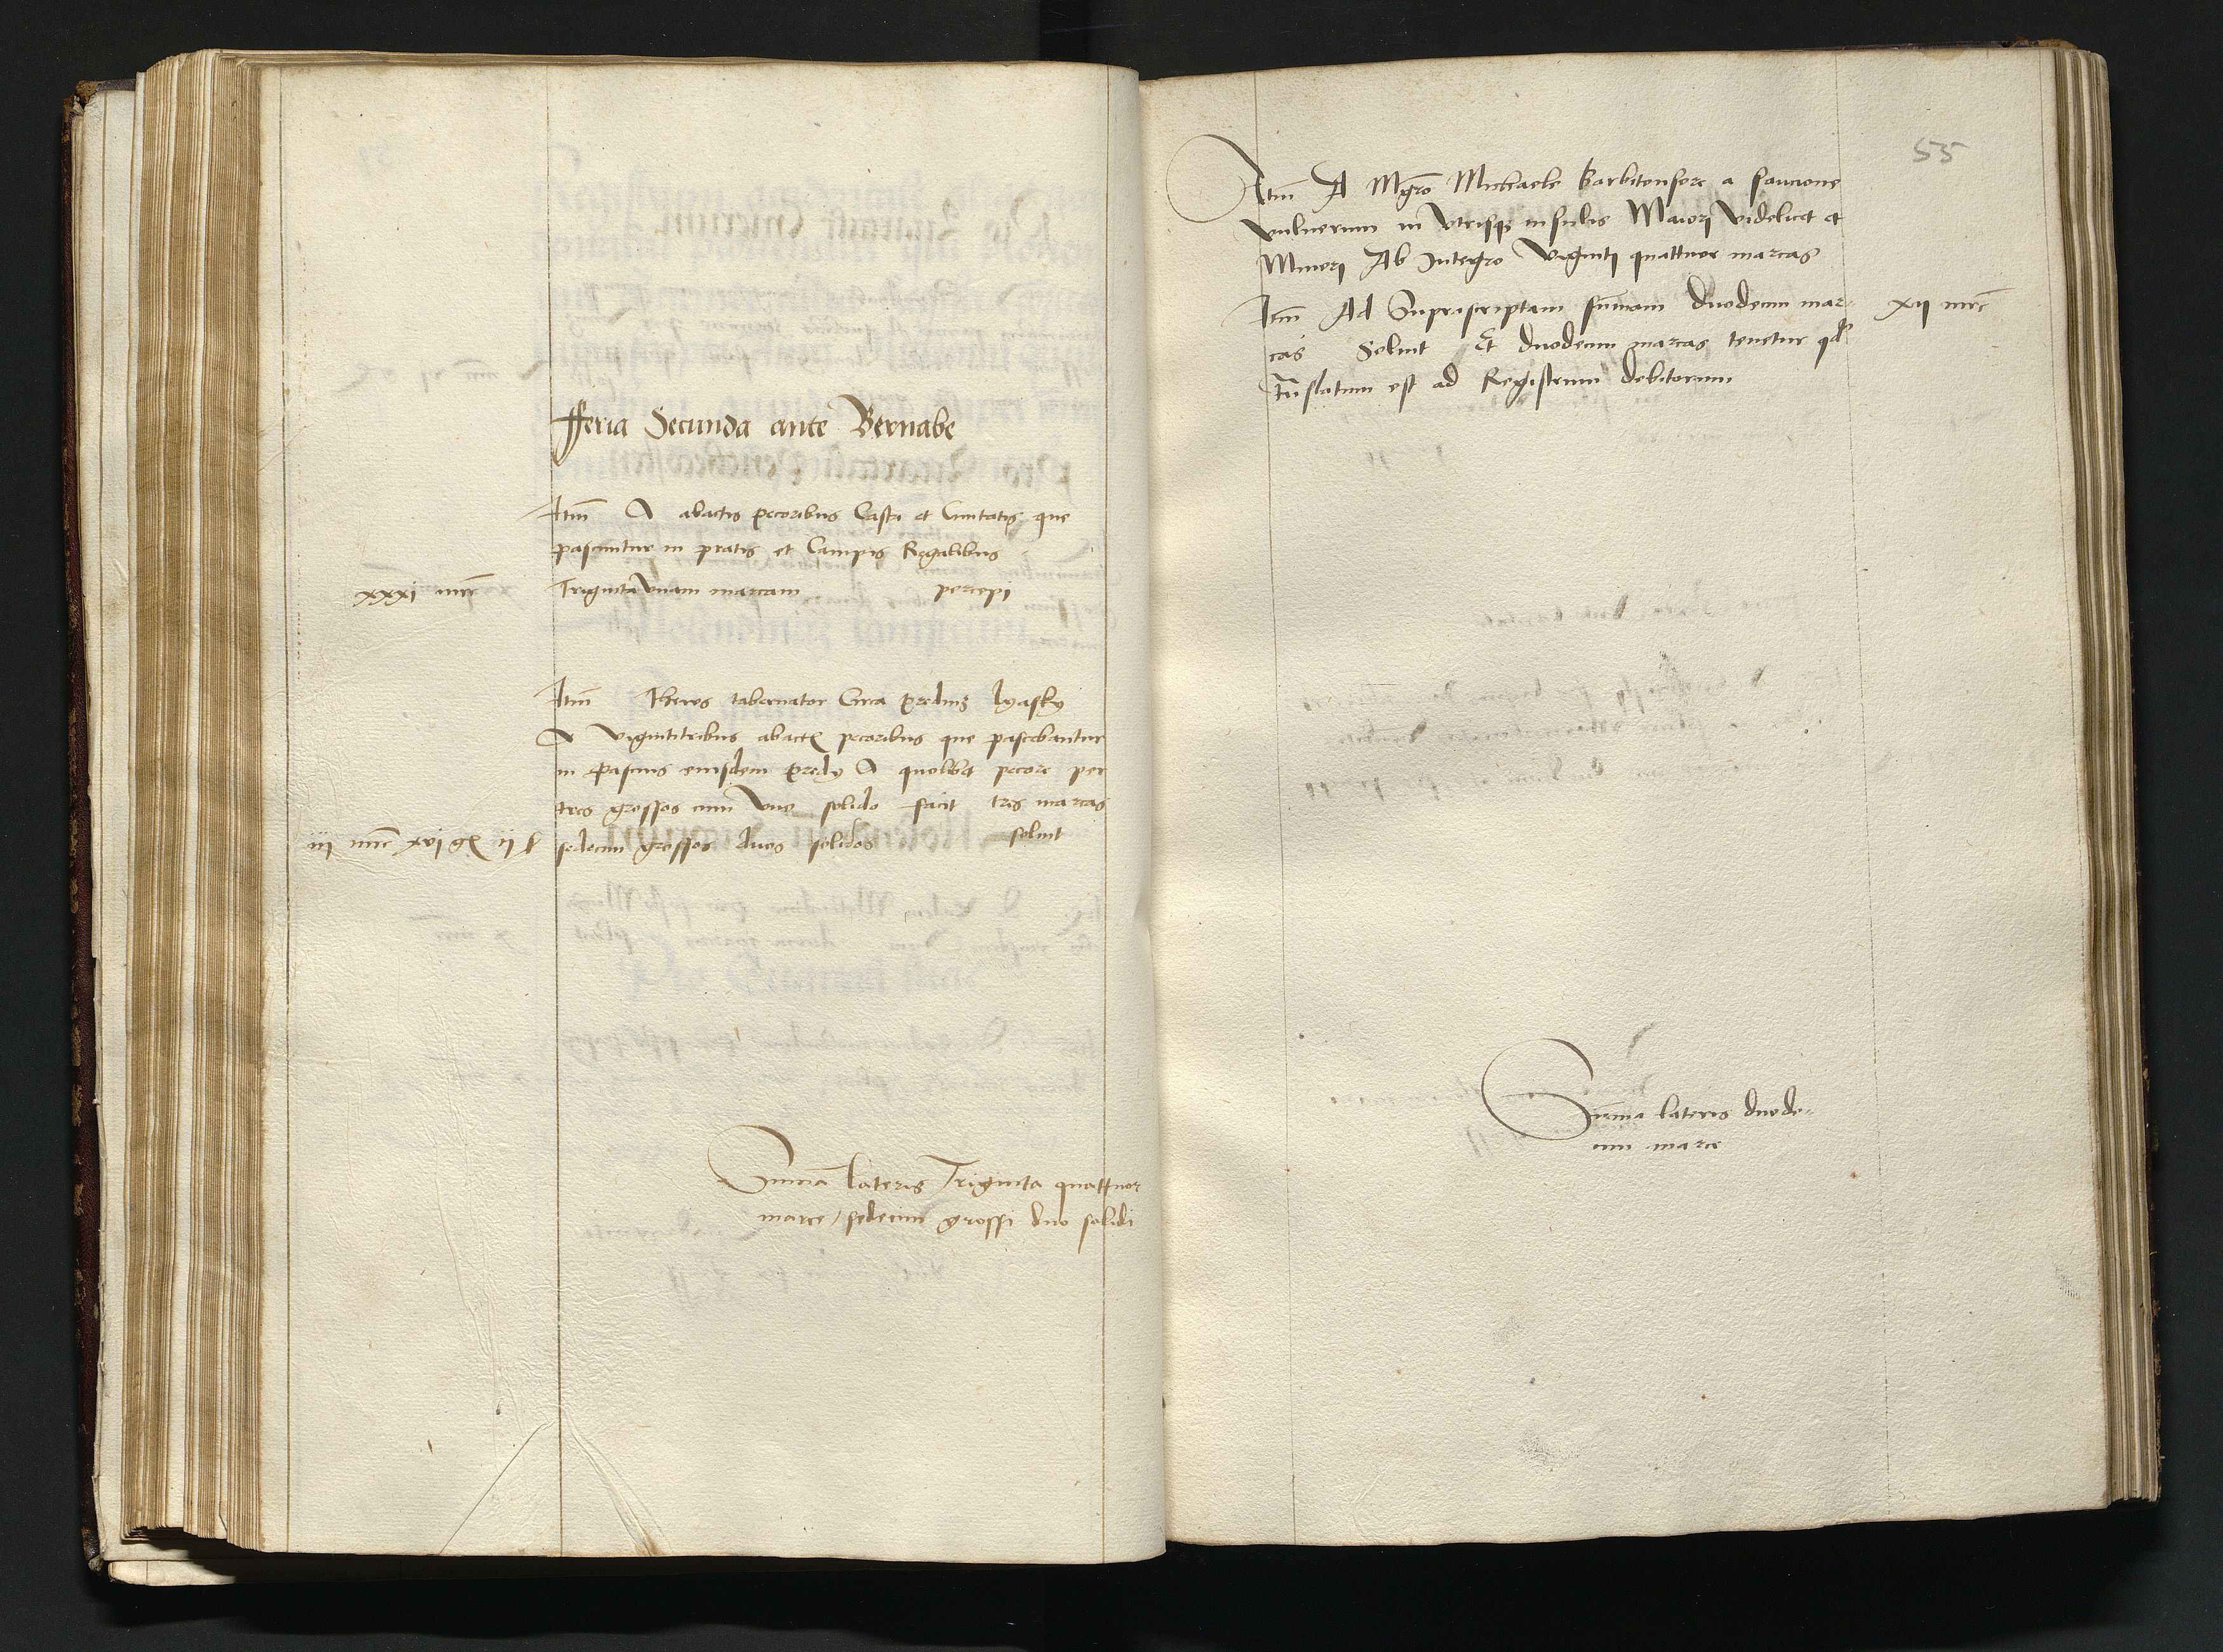 Fferia Secunda ante Bernabe
Itm A abactis pecoribus Castri et Civitatis que
pascuntur in pratis et Campis Regalibus
xxxi mrc Triginta Vnam marcam percepi
Itm tabernator Circa predium lyasky
A vigintitribus abactis pecoribus que pascebantur
in pascuis eiusdem predy A quolibet pecore per
tres grossos cum Vno solido facit tres marcas
iij mrc xvj gr ij s sedecim grossos duos solidos soluit
Summa lateris Triginta quattuor
marce / sedecim grossi duo solidi
55
Itm A Mgro Michaele barbitonsore a sancione
vulnerum in Vtrisque insulis Maiori Videlicet et
Minori Ab Integro Viginti quattuor marcas
Itm Ad Suprascriptam summam duodecim mar- xij mrc
cas Soluit Et duodecim marcas tenetur qd
translatum est ad Registrum debitorum
Summa lateris duode-
cim marce